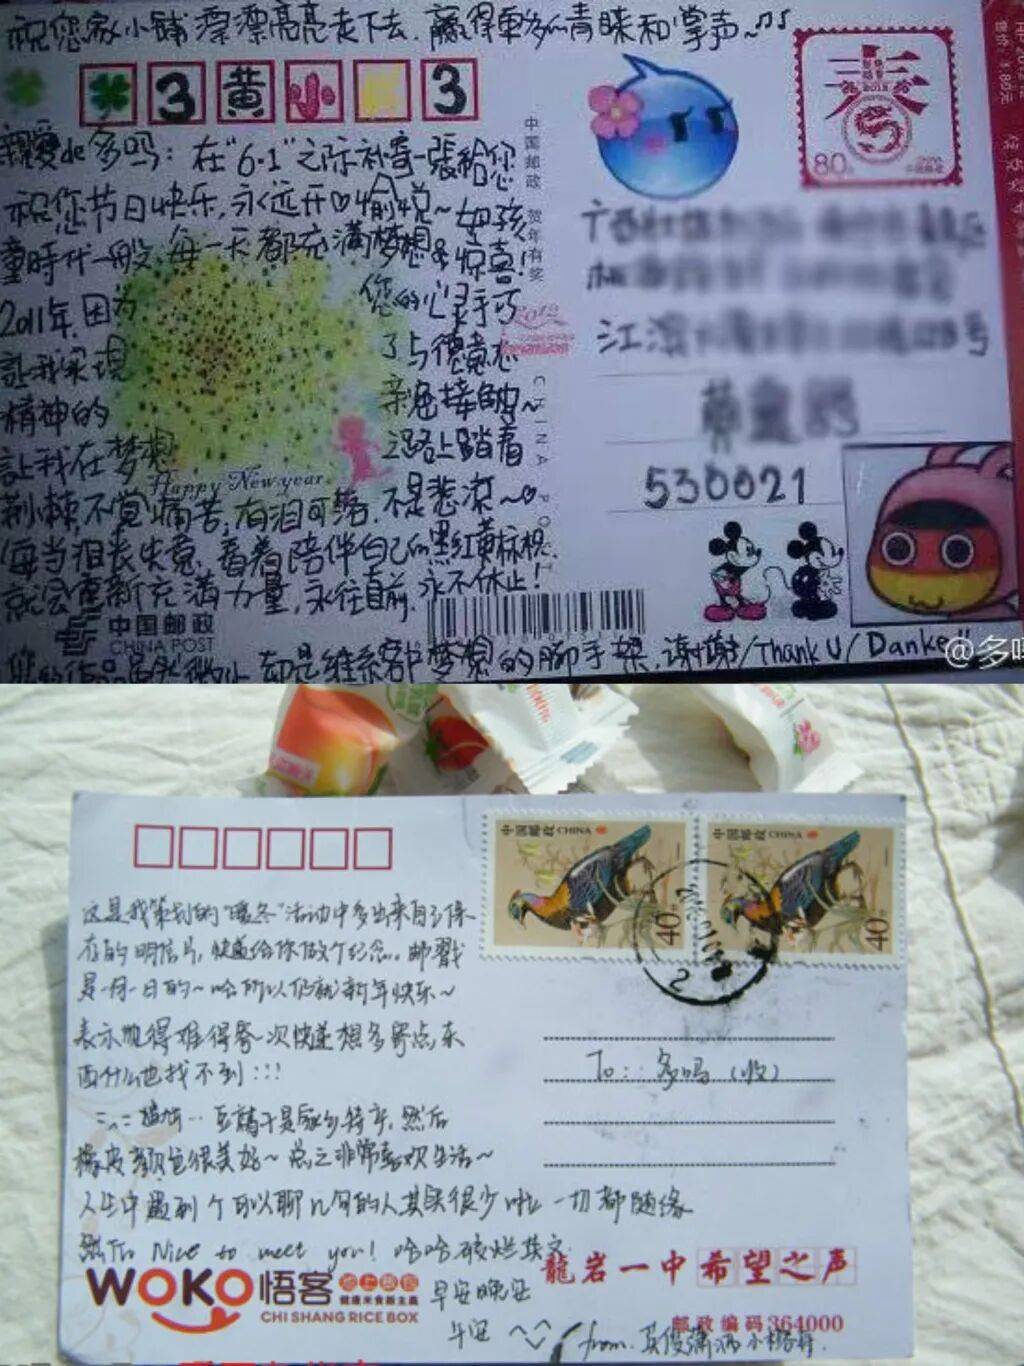 祝您家小铺漂漂亮亮走下去，赢得更多的青睐和掌声~
3黄小 3
親愛de多吗：在"6·1"之际补寄一張給您
祝您节日快乐，永远开♡愉悦~如孩
童時代一般，每一天都充满梦想&惊喜!
2011年，因为您的心灵手巧
让我实现了与德意志
精神的亲密接触~
让我在梦想之路上踏着
荆棘，不觉痛苦，有泪可落，不是悲凉~
每当沮丧失意，看着陪伴自己的黑红黄标枕，
就会重新充满力量，永往直前，永不休止！
却是维系着梦想的脚手架，谢谢/Thank U/Danke
Happy New year
中国邮政
CHINA POST
中国邮政 贺年有奖
2012
CHINA POST
春
2012
80
中国邮政
江滨
号
530021
@多吗
中国邮政 CHINA
40
中国邮政 CHINA
40
这是我策划的"暖冬"活动中多出来自己保
存的明信片，快递给你做个纪念。邮戳
是一月一日的~哈所以仍就新年快乐~
表示觉得难得寄一次快递想多寄点东
西什么也找不到:::
豆腐干是家乡特产，然后
橡皮颜色很美好~总之非常喜欢生活~
人生中遇到个可以聊几句的人其实很少啦 一切都随缘
Nice to meet you! 哈哈破烂英文
早安晚安
午安 ^_^
from
To: 多吗（收）
WOKO 悟客 池上饭包
健康米食新主義
CHI SHANG RICE BOX
龍岩一中希望之声
邮政编码364000